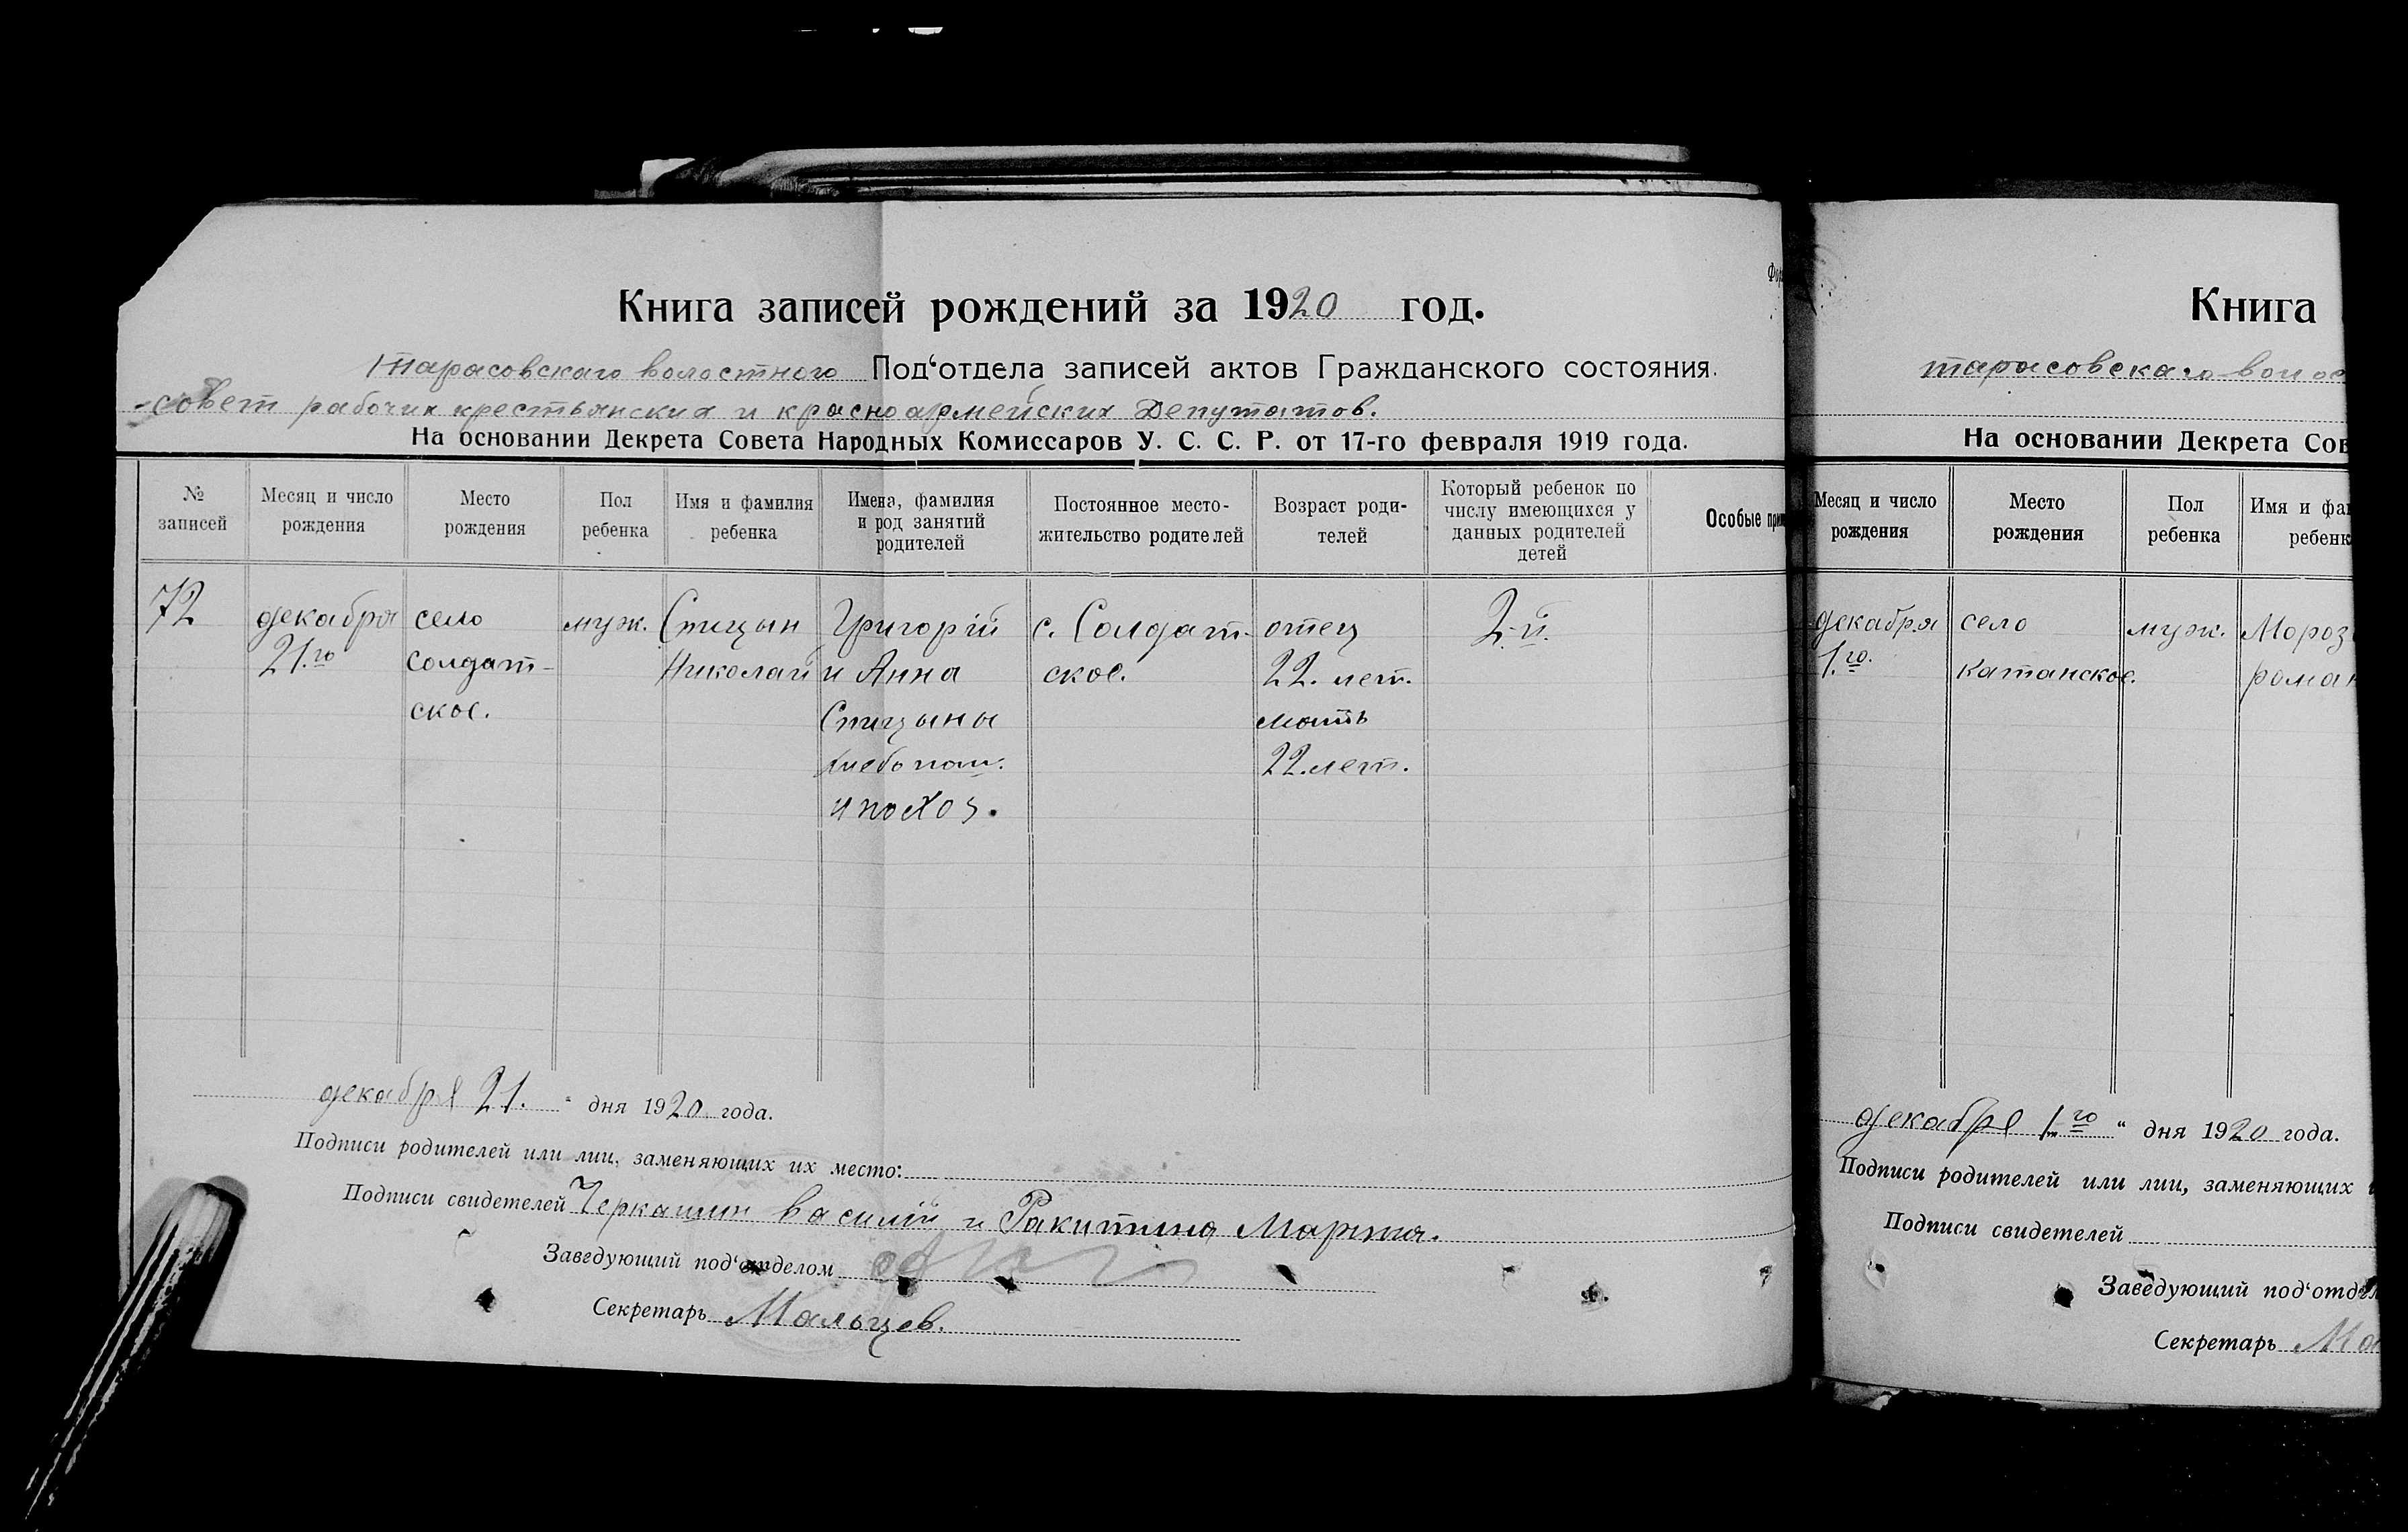 Книга записей рождений за 1920 год.
тарасовскаго волостного Под‘отдела записей актов Гражданского состояния.
совет рабочих крестьянских и красноармейских Депутатов.
На основании Декрета Совета Народных Комиссаров У. С. С. Р. от 17-го февраля 1919 года.
№ записей
Месяц и число рождения
Место рождения
Пол ребенка
Имя и фамилия ребенка
Имена, фамилия и род занятий родителей
Постоянное место-жительство родителей
Возраст роди-телей
Который ребенок по числу имеющихся у данных родителей детей
Особые
72
декабря
21.го
село
солдат-
ское.
муж.
Спицын
Николай
Григорій
и Анна
Спицыны
хлебопаш.
и по хоз.
с. Солдат-
ское.
отец
22. лет.
мать
22. лет.
2-й.
декабря 21. “ дня 1920 года.
Подписи родителей или лиц, заменяющих их место:
Подписи свидетелей Черкашин Василій и Ракитина Марта.
Заведующий под‘отделом
Секретарь Мальцев.
Книга
тарасовскаго волос
На основании Декрета Сов
Месяц и число рождения
Место рождения
Пол ребенка
Имя и фа
ребенк
декабря
1.го.
село
Катанское.
муж.
Мороз
роман
декабря 1го “ дня 1920 года.
Подписи родителей или лиц, заменяющих
Подписи свидетелей
Заведующий под‘отдел
Секретарь Ма